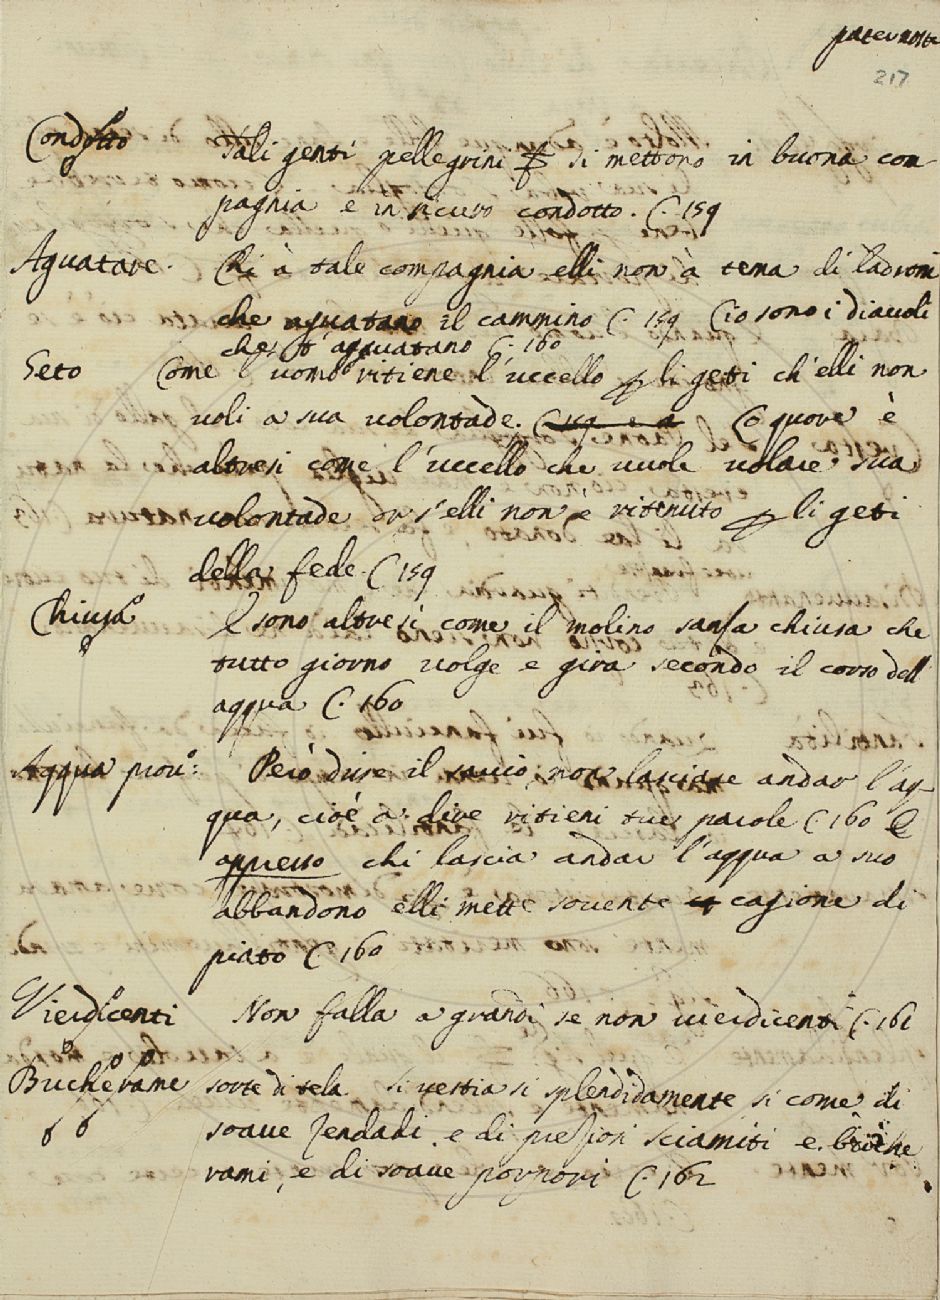 paternost
217
Condotto Tali genti pellegrini si mettono in buona com
pagnia e in sicuro condotto. C. 159
Aguatare. Chi à tale compagnia elli non à tema di ladroni
che aguatano il cammino C. 159 Cio sono i diavoli
che t'agguatano C. 160
Geto Come l'uomo ritiene l'uccello p li geti ch'elli non
voli a sua volontade. C 159 Co quore è
altresi come l'uccello che vuole volare sua
volontade or s'elli non è ritenuto p li geti
della fede. C 159
Chiusa E sono altresi come il molino sansa chiusa che
tutto giorno volge e gira secondo il corso dell
acqua C. 160
Acqua prov: Però dise il savio, non lasciare andar l'ac-
qua, cioè a dire ritieni tue parole C 160 E
appresso chi lascia andar l'acqua a suo
abbandono elli mette sovente cagione di
piato C 160
Vierdicenti Non falla a grandi se non vierdicenti C. 161
Bucherame sorte di tela si vestia si splendidamente si come di
soave zendadi e di preziosi sciamiti e buche
rami, e di soave porpori C. 162